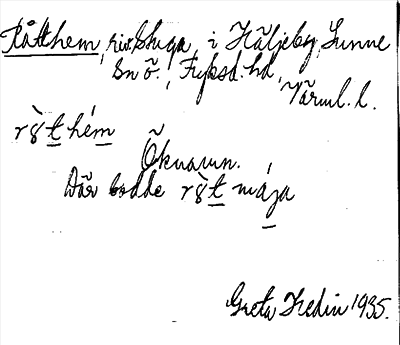 Råtthem, riv.stuga, i Häljeby, Sunne
sn ö., Fryksd. hd,
Värml. l.
r8̀t hém
Öknamn.
Där bodde r8̀t mája
Greta Hedin 1935.